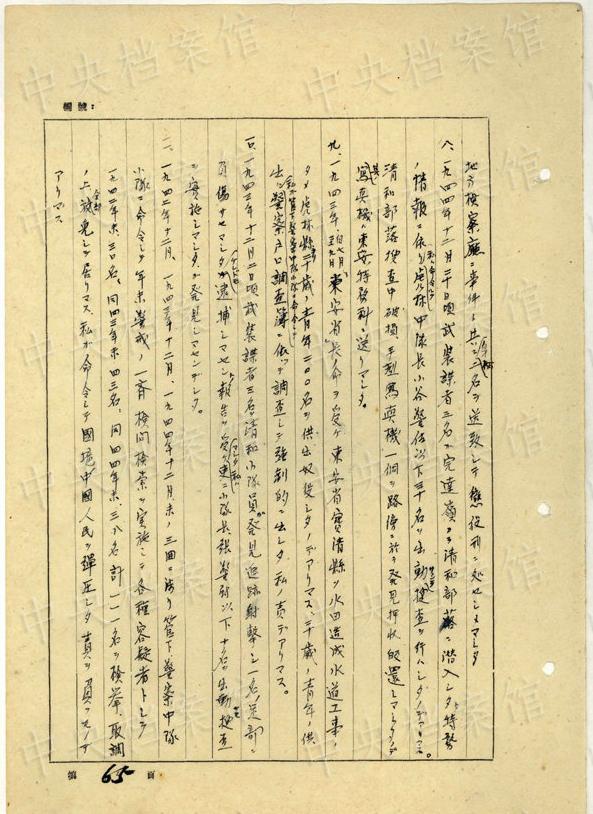 中央档案馆
編號：
地方検察廳ニ事件ト共ニ三名ヲ送致シテ懲役刑ニ処セシメマシタ
八、一九四四年十二月三十日頃武装諜者三名ガ完達嶺カラ清和部落ニ潜入シタ特務
ノ情報ニ依リ虎林中隊長小谷警佐以下三十名ヲ出動捜査ヲ行ハシタノデアリマス。
清和部落捜査中破損手型寫真機一個ヲ路傍ニ於テ発見押収返還シマシタノデ
寫真機ハ東安特務科ニ送リマシタ。
九、一九四三年自七月至九月東安省長ノ命ヲ受ケ東安省寶清縣ノ水田造成水道工事ノ
タメ虎林縣二十歳ノ青年二〇〇名ヲ供出奴役シタノデアリマス、二十歳ノ青年ノ供
出ハ警察戸口調査簿ニ依ッテ調査シテ強制的ニ出シタ私ノ責デアリマス。
一〇、一九四三年十二月二日頃武装諜者三名ヲ清和小隊員ガ発見追跡射撃シ一名ノ足部ニ
負傷サセマシタガ逮捕シマセン報告ヲ受ケ更ニ小隊長張警尉以下十名ヲ出動捜査
ヲ実施シマシタガ発見シマセンデシタ。
一一、一九四二年十二月、一九四三年十二月、一九四四年十二月末ノ三回ニ渉リ管下警察中隊
小隊ニ命令シテ年末警戒ノ一斉検問検索ヲ実施シテ各種容疑者トシテ
一九四二年末三〇名、同四三年末四三名、同四四年末三八名計一一一名ヲ検挙、取調
ノ上放免シテ居リマス私ガ命令シテ國境中國人民ヲ弾圧シタ責ヲ負フモノデ
アリマス
第 65 頁